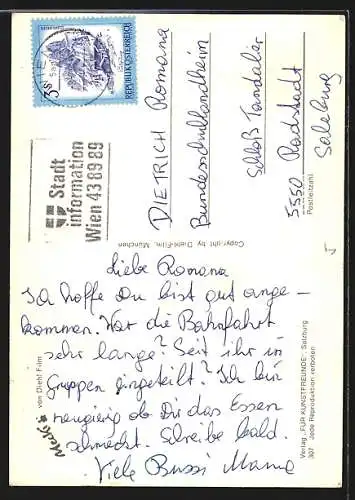 REPUBLIK ÖSTERREICH
Stadt
information
Wien 43 89 89
DIETRICH Romana
Bundesschullandheim
Schloß Tandalier
5550 Radstadt
Postleitzahl
Salzburg
Copyright by Diehl-Film, München
Liebe Romana
Ich hoffe Du bist gut ange-
kommen. War die Bahnfahrt
sehr lange? Seit ihr in
Gruppen eingeteilt? Ich bin
neugierig ob Dir das Essen
schmeckt. Schreibe bald.
Viele Bussi Mama
von Diehl Film
Verlag „FÜR KUNSTFREUNDE“ Salzburg
307 Jede Reproduktion verboten